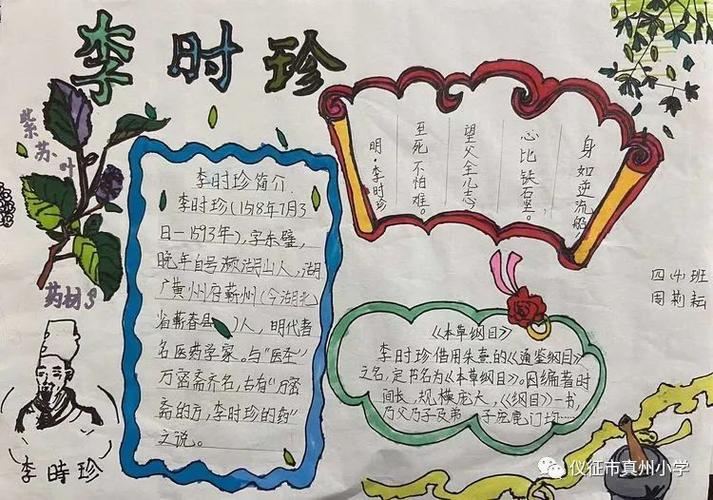 李时珍
紫苏叶
药材
李时珍
李时珍简介
李时珍(1518年7月3
日—1593年),字东璧,
晚年自号濒湖山人,湖
广黄州府蕲州(今湖北
省蕲春县 )人,明代著
名医药学家。与“医圣”
万密斋齐名,古有“万密
斋的方,李时珍的药”
之说。
身如逆流船,
心比铁石坚。
望父全儿志,
至死不怕难。
明·李时珍
四(4)班
周荊耘
《本草纲目》
李时珍借用朱熹的《通鉴纲目》
之名,定书名为《本草纲目》。因编著时
间长,规模庞大,《纲目》一书,
乃父乃子及弟 子庞鹿门均……
仪征市真州小学